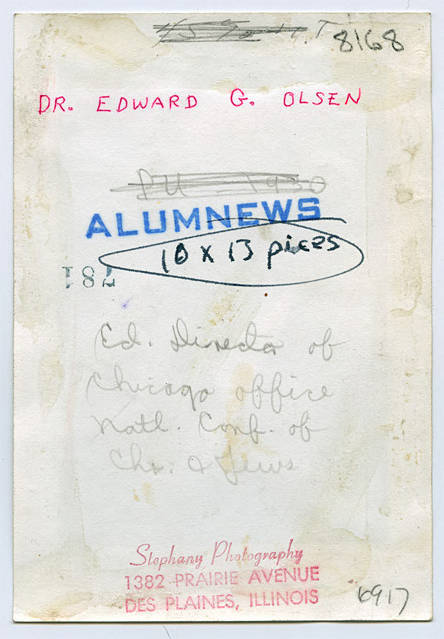 8168
DR. EDWARD G. OLSEN
PU 1930
ALUMNEWS
10 x 13 pices
781
Ed. Director of
Chicago office
Natl. Conf. of
Chr. & Jews
Stephany Photography
1382 PRAIRIE AVENUE
DES PLAINES, ILLINOIS
6917